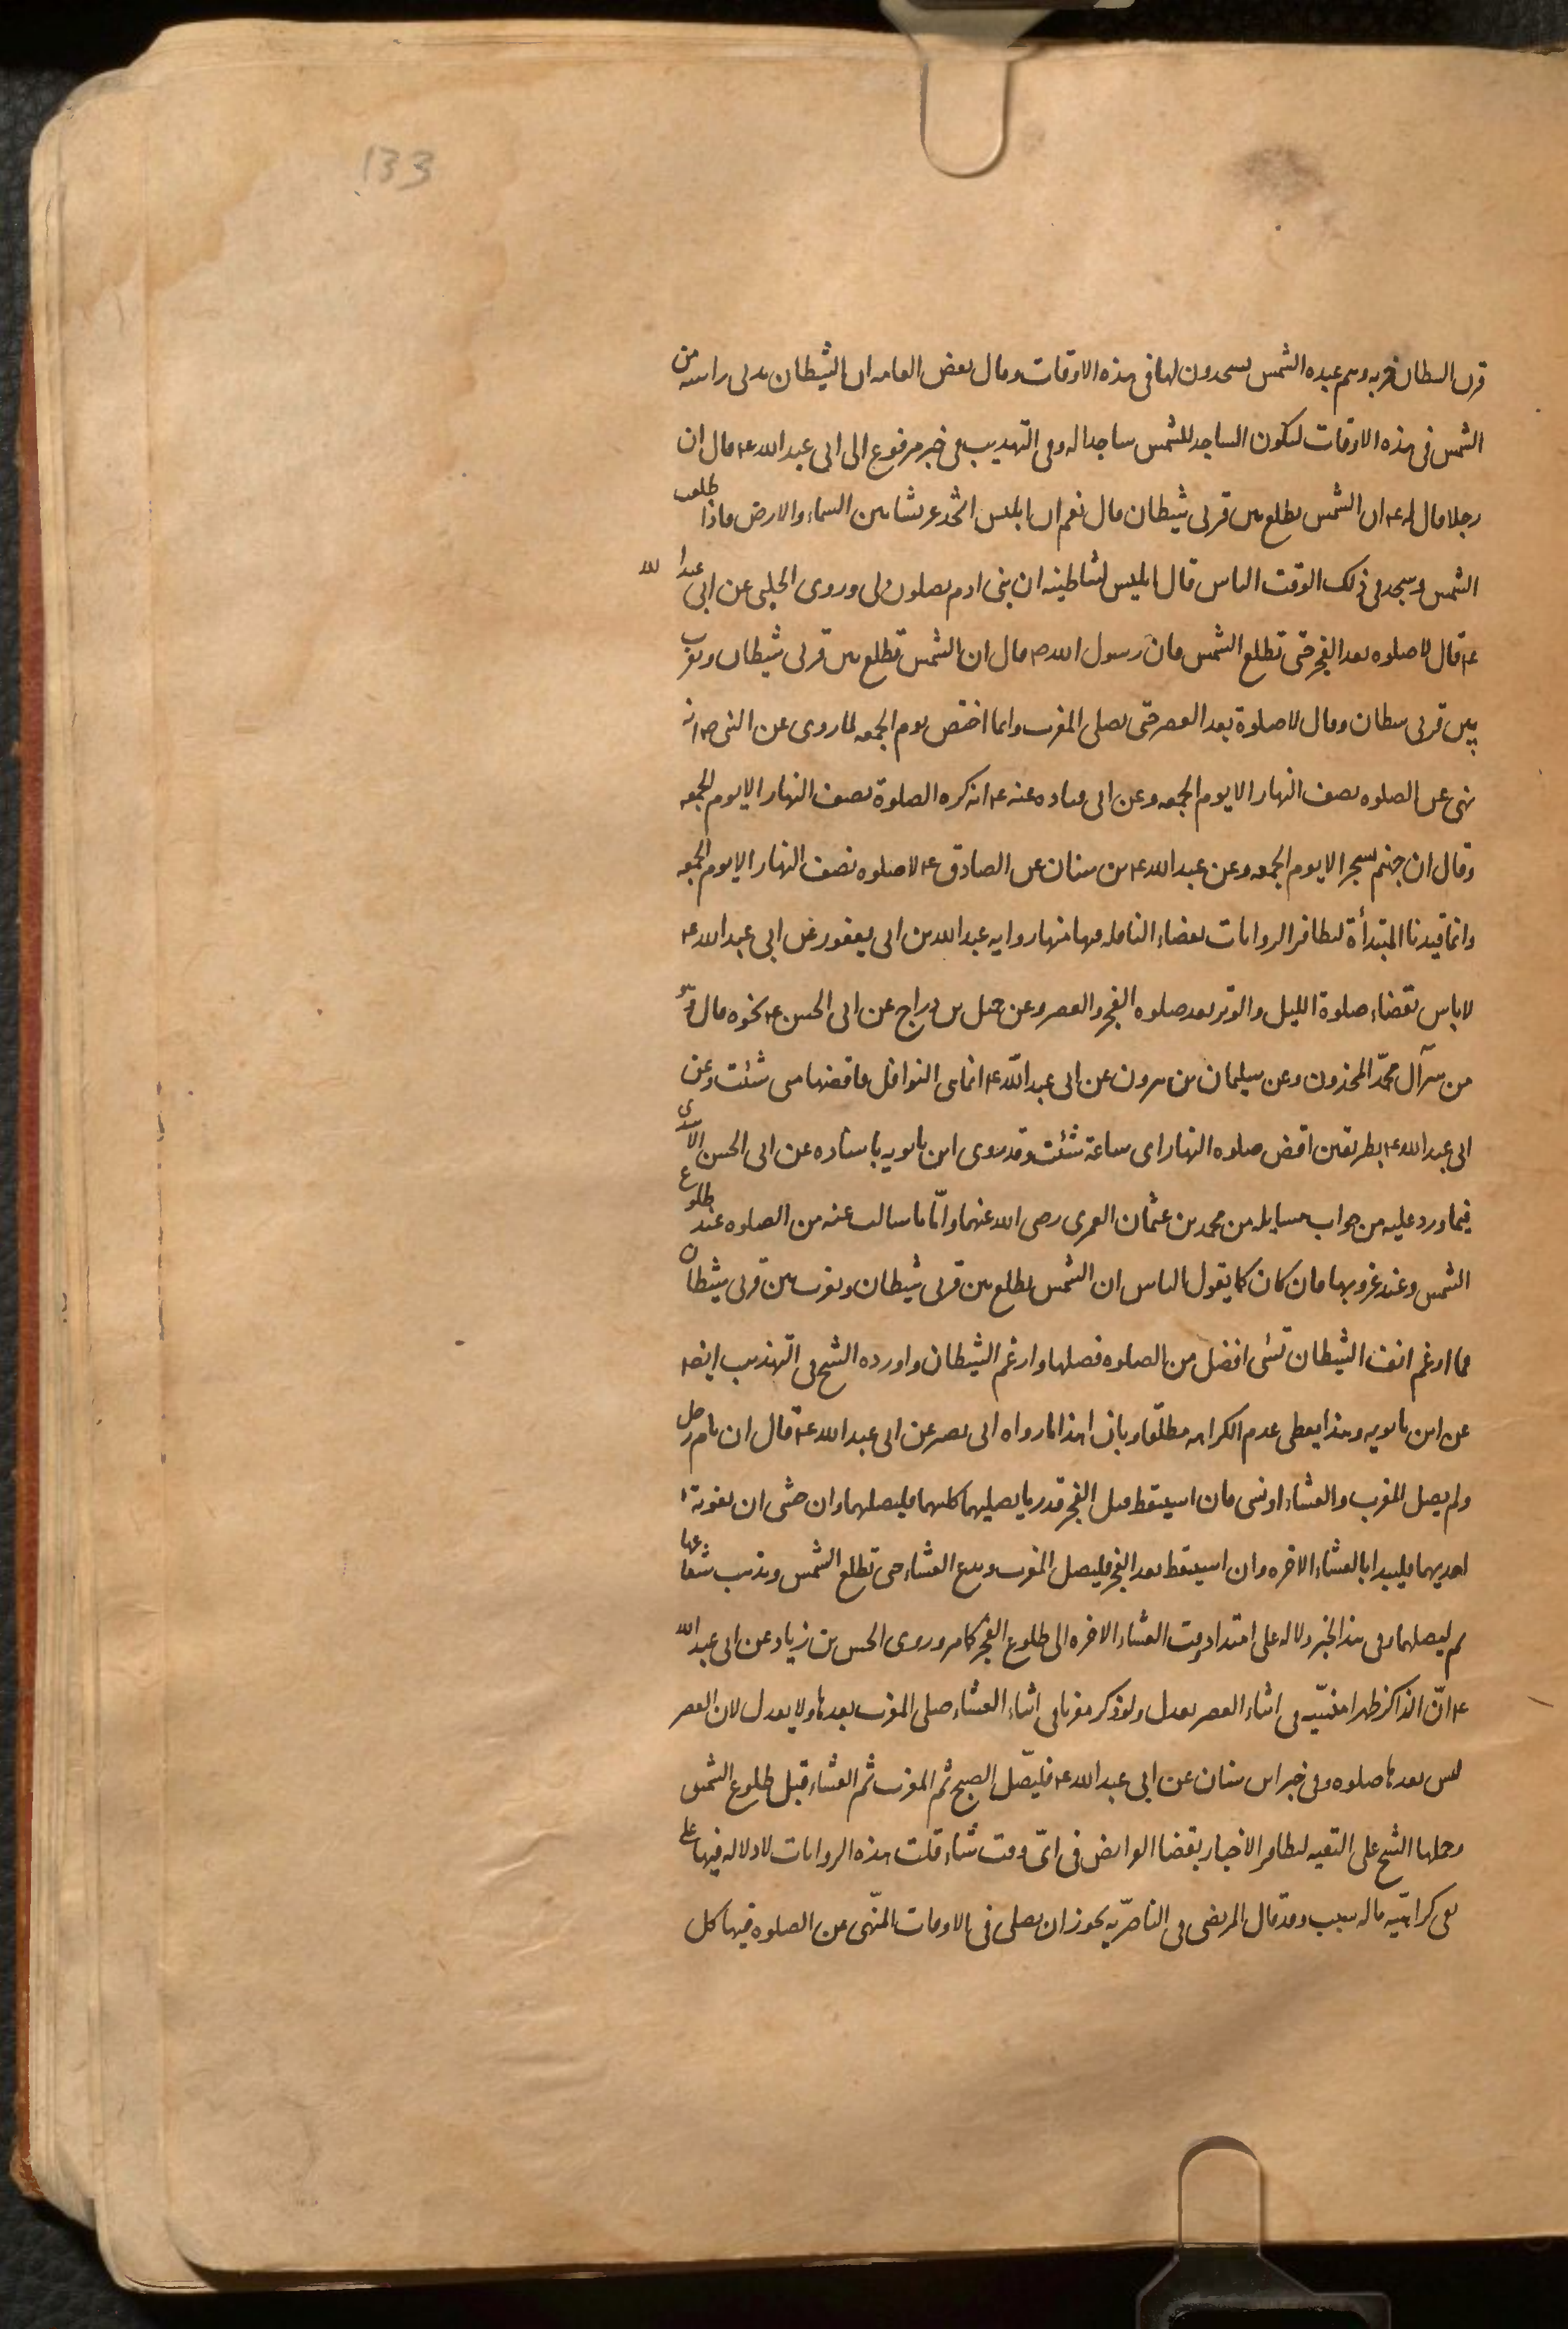 133
قرن الشيطان حزبه وهم عبده الشمس يسجدون لها فى هذه الاوقات وقال بعض العامه ان الشيطان يدنى راسه من
الشمس فى هذه الاوقات ليكون الساجد للشمس ساجدا له وفى التهذيب فى خبر مرفوع الى ابى عبد الله ع قال ان
رجلا قال له ع ان الشمس يطلع بين قرنى شيطان قال نعم ان ابليس اتخذ عرشا بين السماء والارض فاذا طلعت
الشمس وسجد فى ذلك الوقت الناس قال ابليس لشاطينه ان بنى ادم يصلون لى وروى الحلبى عن ابى عبد الله
ع قال لا صلوه بعد الفجر حتى تطلع الشمس فان رسول الله ص قال ان الشمس تطلع بين قرنى شيطان وتغرب
بين قرنى شيطان وقال لا صلوة بعد العصر حتى يصلى المغرب وانما اختص يوم الجمعه لما روى عن النبى ص انه
نهى عن الصلوه نصف النهار الا يوم الجمعه وعن ابى قتاده عنه ع انه كره الصلوة نصف النهار الا يوم الجمعه
وقال ان جهنم تسجر الا يوم الجمعه وعن عبد الله ع بن سنان عن الصادق ع لا صلوه نصف النهار الا يوم الجمعه
وانما قيدنا المبتدأة لتظافر الروايات بقضاء النافله فيها منها روايه عبد الله بن ابى يعفور عن ابى عبد الله ع
لا باس بقضاء صلوة الليل والوتر بعد صلوه الفجر والعصر وعن جميل بن دراج عن ابى الحسن ع نحوه قال وهو
من سر آل محمّد المخزون وعن سليمان بن هرون عن ابى عبد الله ع انما هى النوافل فاقضها متى شئت وعن
ابى عبد الله ع بطريقين اقض صلوه النهار اى ساعة شئت وقد روى ابن بابويه باسناده عن ابى الحسن الاسدى
فيما ورد عليه من جواب مسايله من محمد بن عثمان العمرى رضى الله عنهما وامّا ما سالت عنه من الصلوه عند طلوع
الشمس وعند غروبها فان كان كما يقول الناس ان الشمس يطلع بين قرنى شيطان وتغرب بين قرنى شيطان
فما ارغم انف الشيطان بشى افضل من الصلوه فصلها وارغم الشيطان واورده الشيخ فى التهذيب ايضا
عن ابن بابويه وهذا يعطى عدم الكراهه مطلقا وبازا هذا ما رواه ابى بصير عن ابى عبد الله ع قال ان نام رجل
ولم يصل المغرب والعشاء او نسى فان استيقظ قبل الفجر قدر ما يصليهما كليهما فليصلهما وان خشى ان يفوته
احديهما فليبدا بالعشاء الاخره وان استيقظ بعد الفجر فليصل المغرب ويدع العشاء حتى تطلع الشمس ويذهب شعاعها
ثم ليصلها وفى هذا الخبر دلاله على امتداد وقت العشاء الاخره الى طلوع الفجر كما مر وروى الحسن بن زياد عن ابى عبد الله
ع انّ الذاكر ظهرا منسيّه فى اثناء العصر يعدل ولو ذكر مغربا فى اثناء العشاء صلى المغرب بعدها ولا يعدل لان العصر
ليس بعدها صلوه وفى خبر ابن سنان عن ابى عبد الله ع فليصّل الصبح ثم المغرب ثم العشاء قبل طلوع الشمس
وحملها الشيخ على التقيه لتظافر الاخبار بقضا الفرايض فى اىّ وقت شاء قلت هذه الروايات لا دلاله فيها على
نفى كراهيّه ماله سبب وقد قال المرتضى فى الناصرّيه يجوز ان يصلى فى الاوقات المنّهى عن الصلوه فيها كل